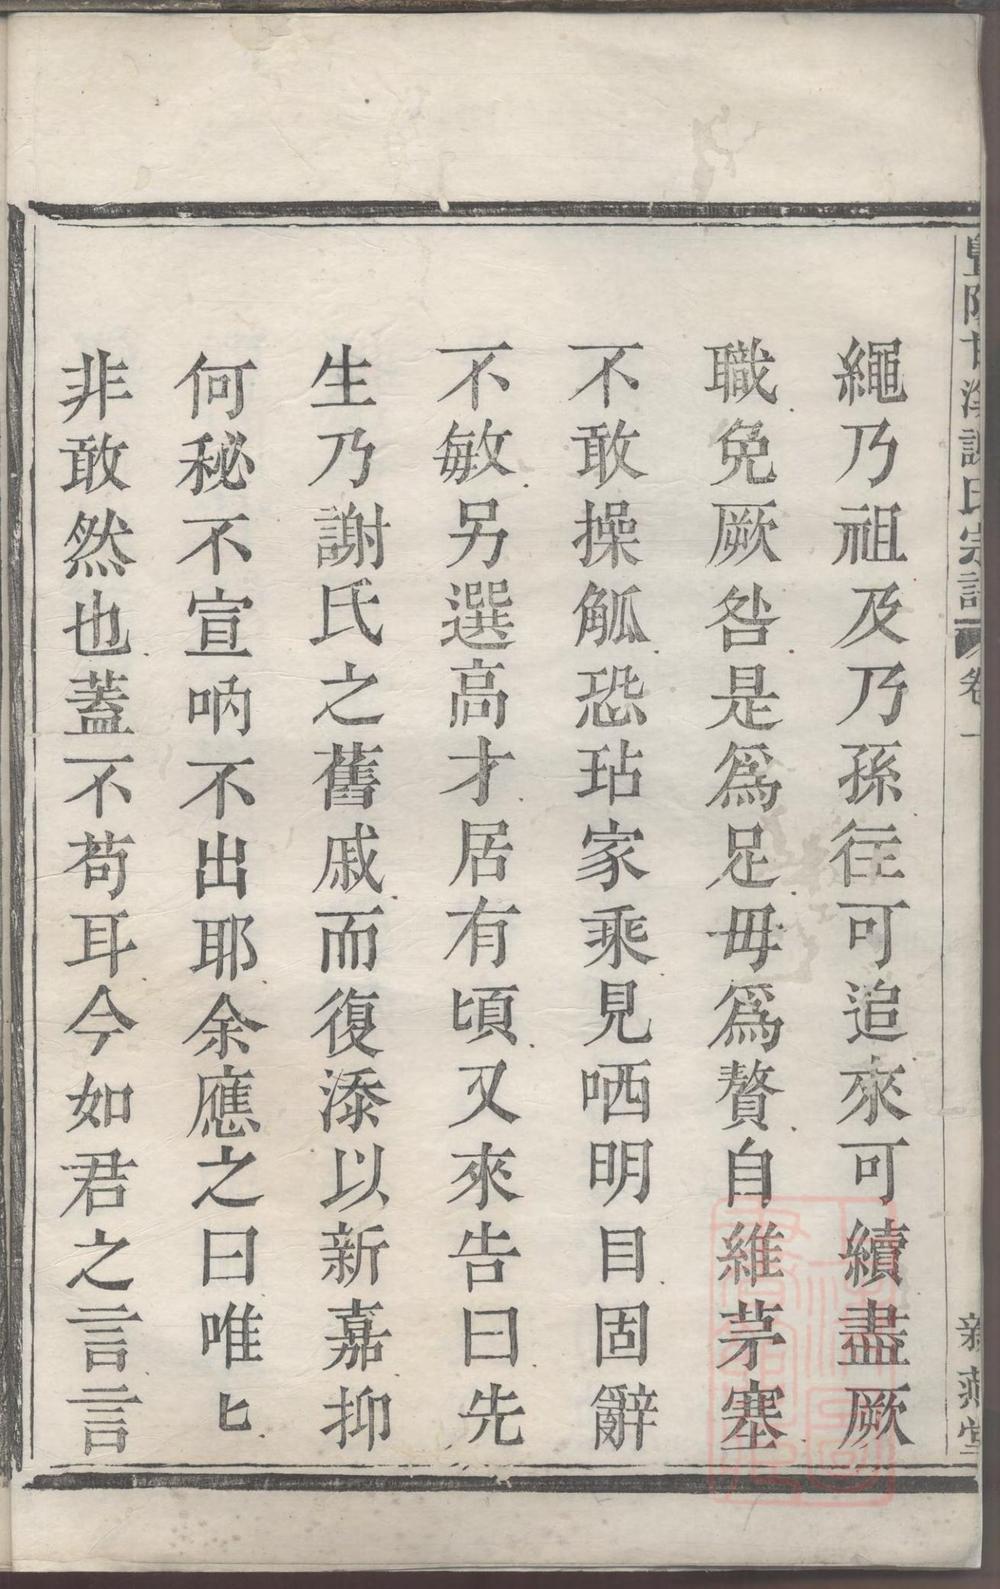 繩乃祖及乃孫徃可追來可續盡厥
職免厥咎是爲足毋爲贅自維茅塞
不敢操觚恐玷家乘見哂明目固辭
不敏另選高才居有頃又來告曰先
生乃謝氏之舊戚而復添以新嘉抑
何秘不宣吶不出耶余應之曰唯匕
非敢然也蓋不苟耳今如君之言言
氏宗譜 卷一